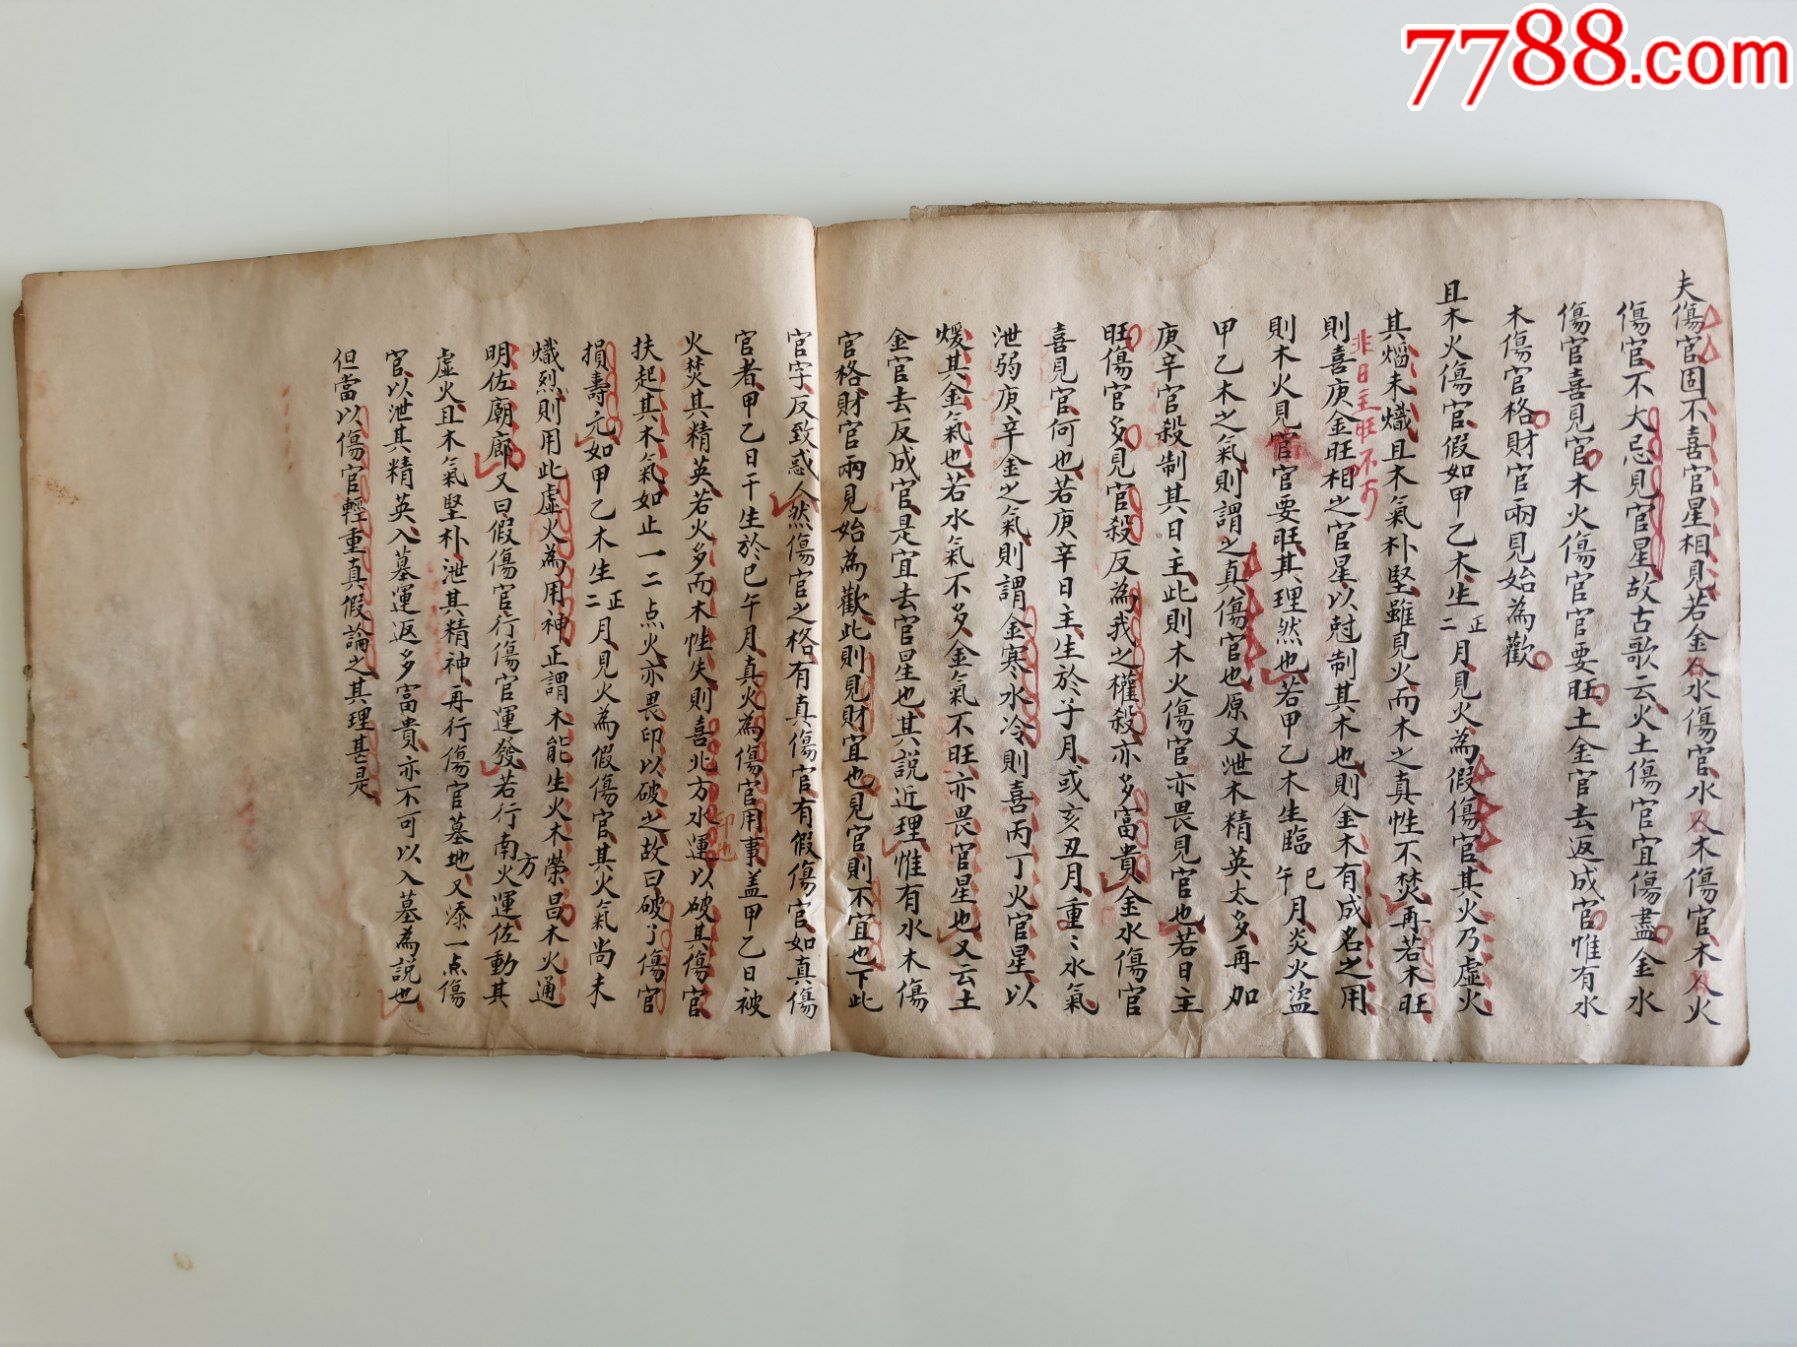 7788.com
夫傷官固不喜官星相見若金人水傷官水入木傷官木入火
傷官不大忌見官星故古歌云火土傷官宜傷盡金水
傷官喜見官木火傷官官要旺土金官去返成官惟有水
木傷官格財官兩見始為歡
且木火傷官假如甲乙木生正二月見火為假傷官其火乃虛火
其焰未熾且木氣朴堅雖見火而木之真性不焚再若木旺
非日主旺不可
則喜庚金旺相之官星以尅制其木也則金木有成名之用
則木火見官官要旺其理然也若甲乙木生臨巳午月炎火盜
甲乙木之氣則謂之真傷官也原又泄木精英太多再加
庚辛官殺制其日主此則木火傷官亦畏見官也若日主
旺傷官多見官殺反為我之權殺亦多富貴金水傷官
喜見官何也若庚辛日主生於子月或亥丑月重々水氣
泄弱庚辛金之氣則謂金寒水冷則喜丙丁火官星以
煖其金氣也若水氣不多金氣不旺亦畏官星也又云土
金官去反成官是宜去官星也其說近理惟有水木傷
官格財官兩見始為歡此則見財宜也見官則不宜也下此
官字反致惑人然傷官之格有真傷官有假傷官如真傷
官者甲乙日干生於巳午月真火為傷官用事盖甲乙日被
火焚其精英若火多而木性失則喜北方水運以破其傷官
印也
扶起其木氣如止一二点火亦畏印以破之故曰破了傷官
損壽元如甲乙木生正二月見火為假傷官其火氣尚未
熾烈則用此虛火為用神正謂木能生火木榮昌木火通
明佐廟廊又曰假傷官行傷官運發若行南方火運佐動其
虛火且木氣堅朴泄其精神再行傷官墓地又添一点傷
官以泄其精英入墓運返多富貴亦不可以入墓為説也
但當以傷官輕重真假論之其理甚是